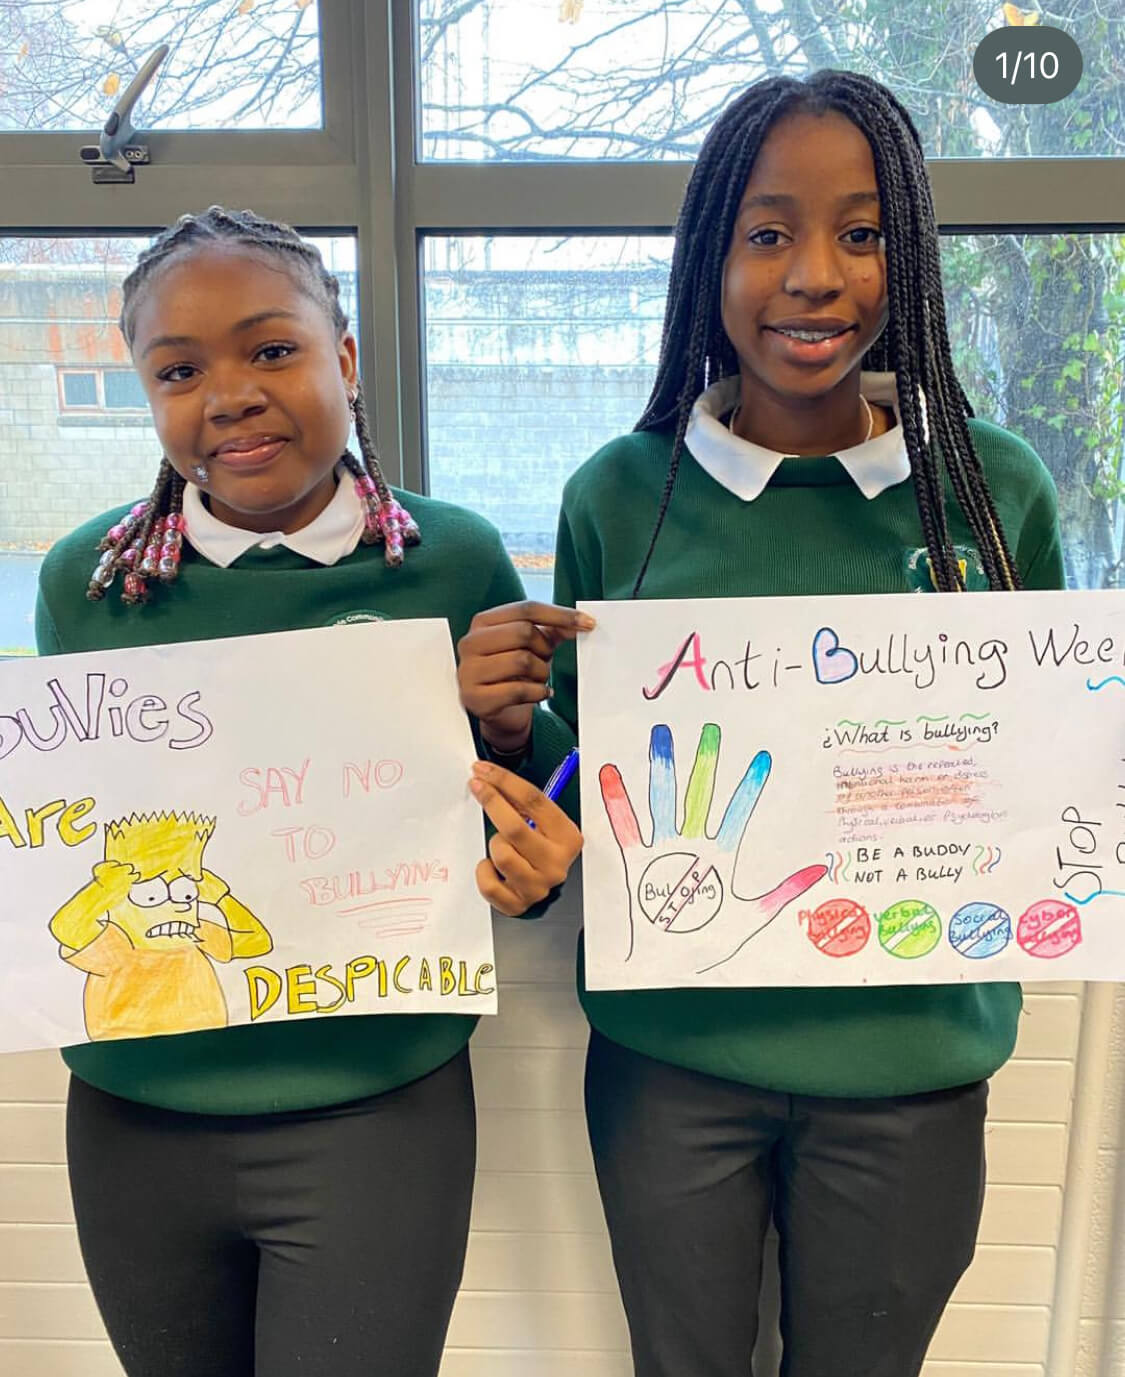 1/10
ullies
Are
SAY NO
TO
BULLYING
DESPICABLE
Anti-Bullying Wee
¿What is bullying?
Bullying is the repeated,
intentional harm or distress
of another person often
through a combination of
Physical, verbal, or Psychological
actions.
BE A BUDDY
NOT A BULLY
Bullying
STOP
Physical bullying
verbal bullying
Social Bullying
cyber bullying
STOP